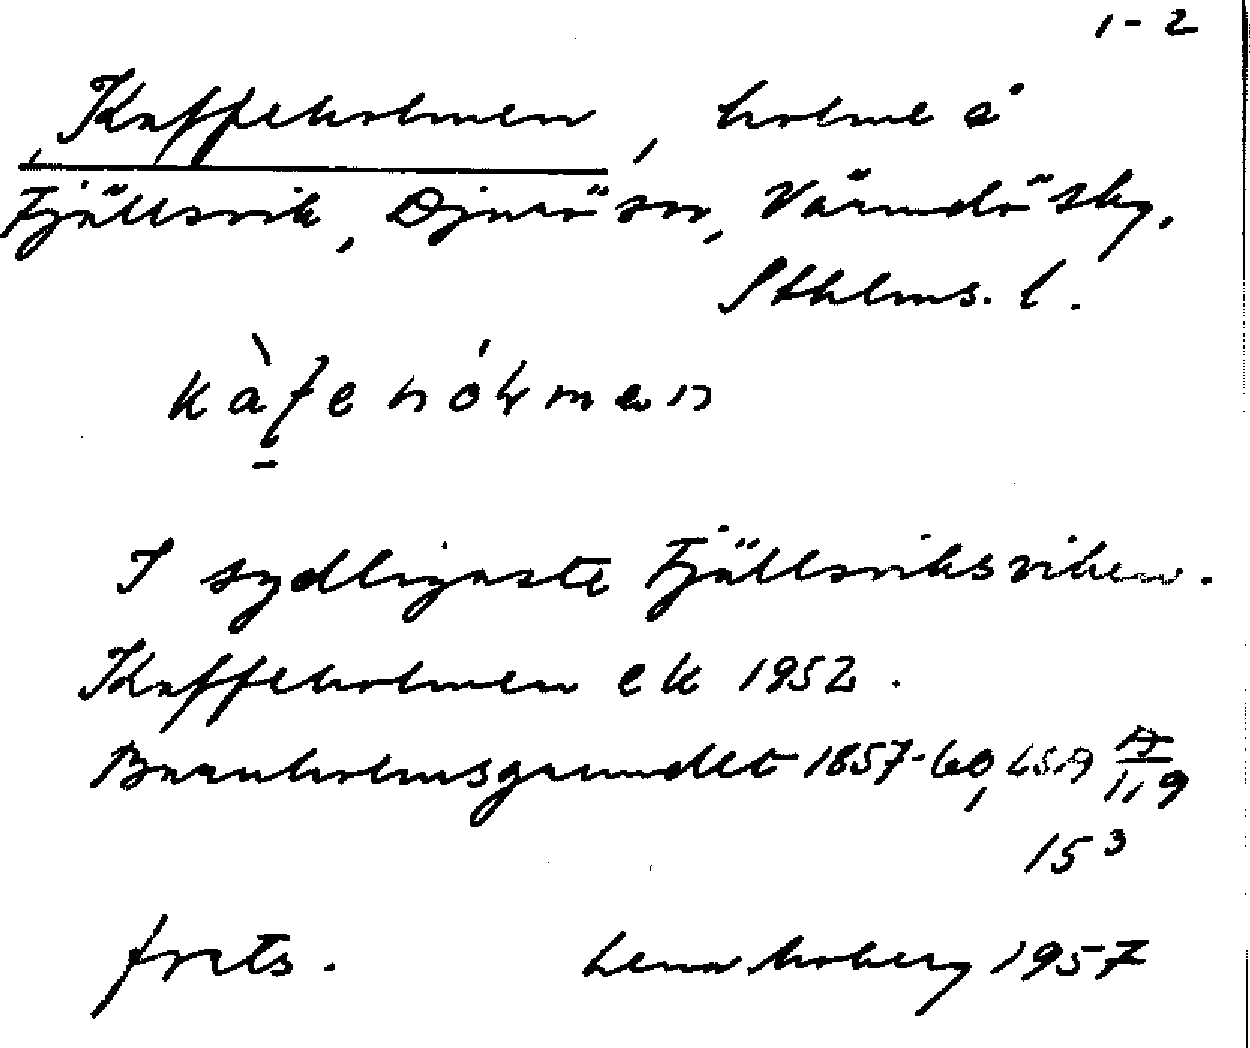 1-2
Kaffeholmen, holme å
Fjällsvik, Djurö sn, Värmdö sky,
Sthlms. l.
kàfehólmen
I sydligaste Fjällsviksviken.
Kaffeholmen ek 1952.
1857-60, LSA A/119
15³
forts. Lena Moberg 1957